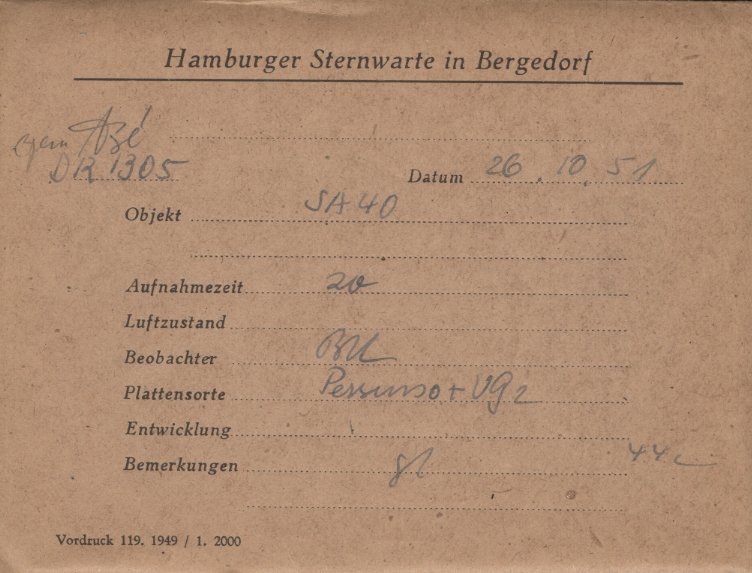 Hamburger Sternwarte in Bergedorf
DR 1305
Datum 26.10.51
Objekt SA 40
Aufnahmezeit 20
Luftzustand
Beobachter
Plattensorte VG2
Entwicklung
Bemerkungen
Vordruck 119. 1949 / 1. 2000